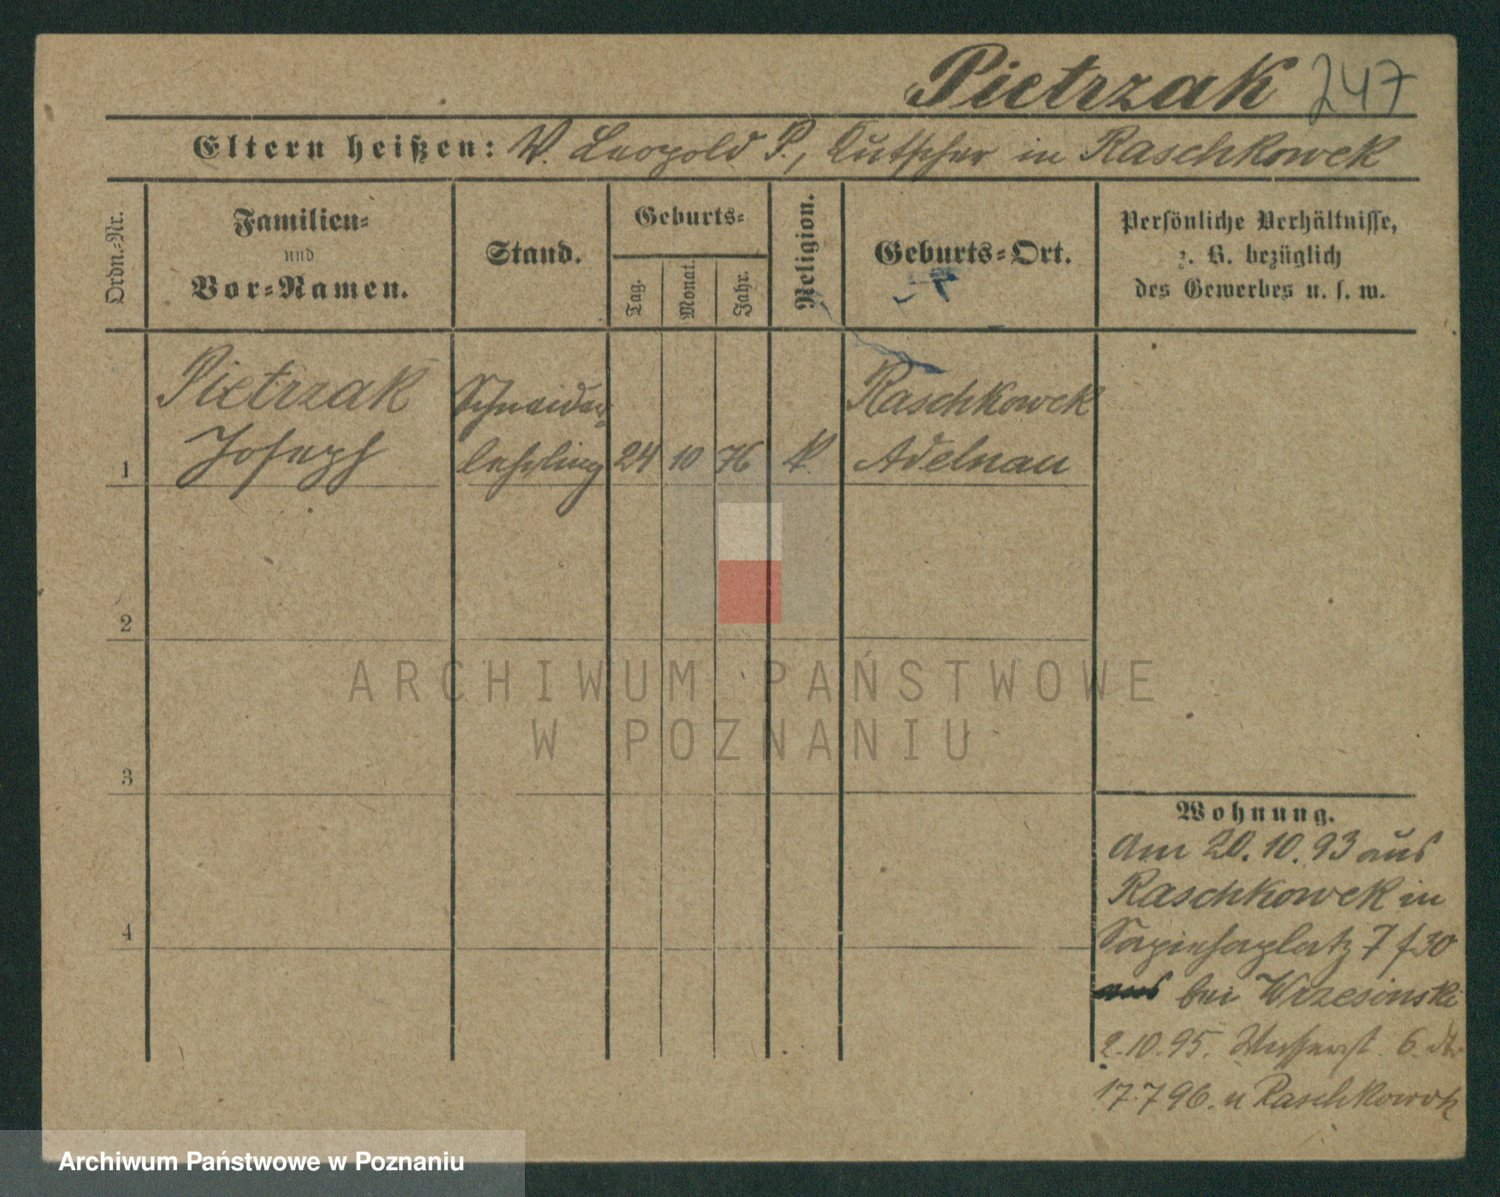 Pietrzak 247
Eltern heißen: V. Leopold P., Kutscher in Raschkowek
Ordn.-Nr.
Familien-
und
Vor-Namen.
Stand.
Geburts-
Tag.
Monat.
Jahr.
Religion.
Geburts-Ort.
Persönliche Verhältnisse,
z. B. bezüglich
des Gewerbes u. s. w.
Pietrzak
Joseph
Schneider-
lehrling
1
24 10 76
K.
Raschkowek
Adelnau
2
3
4
Wohnung.
Am 20.10.93 aus
Raschkowek in
Sapiehaplatz 7
bei Wrzesinski
2.10.95. 6.
17.7.96. n Raschkowek
ARCHIWUM PAŃSTWOWE
W POZNANIU
Archiwum Państwowe w Poznaniu